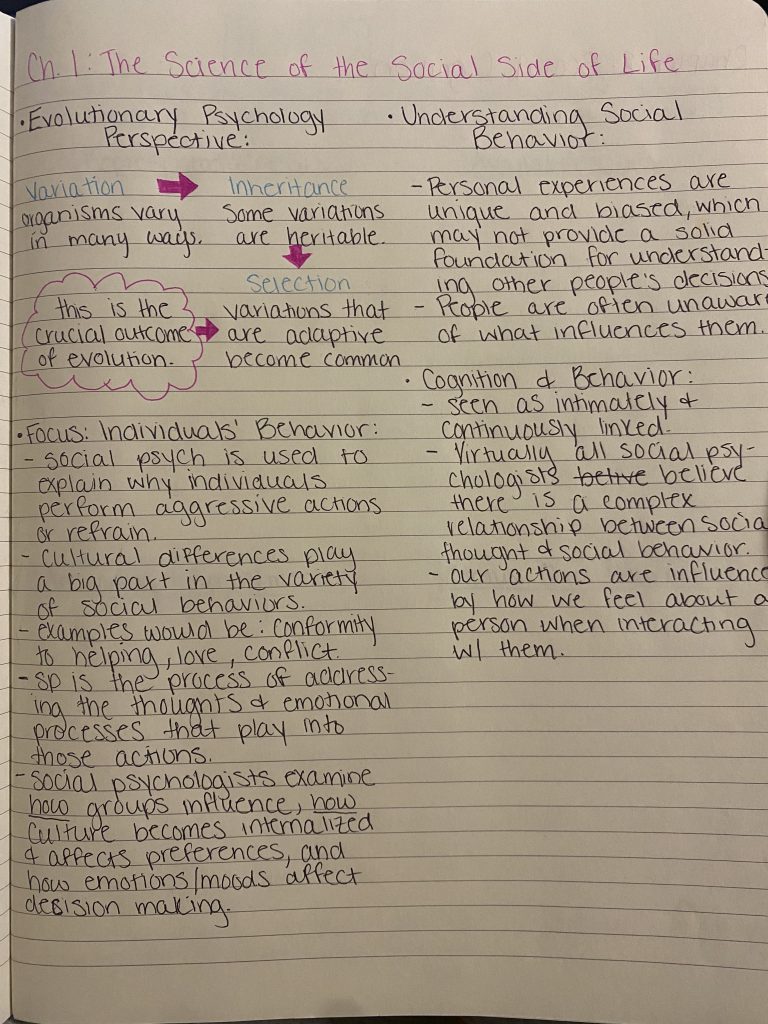 Ch. 1: The Science of the Social Side of Life
• Evolutionary Psychology
Perspective:
Variation
organisms vary
in many ways.
Inheritance
Some variations
are heritable.
Selection
variations that
are adaptive
become common
this is the
crucial outcome
of evolution.
• Focus: Individuals' Behavior:
- social psych is used to
explain why individuals
perform aggressive actions
or refrain.
- Cultural differences play
a big part in the variety
of social behaviors.
- examples would be: conformity
to helping, love, conflict.
- SP is the process of address-
ing the thoughts & emotional
processes that play into
those actions.
- Social psychologists examine
how groups influence, how
culture becomes internalized
& affects preferences, and
how emotions/moods affect
desision making.
• Understanding Social
Behavior:
- Personal experiences are
unique and biased, which
may not provide a solid
foundation for understand-
ing other people's decisions
- People are often unawar
of what influences them.
• Cognition & Behavior:
- seen as intimately &
continuously linked.
- Virtually all social psy-
chologists betive believe
there is a complex
relationship between socia
thought & social behavior.
- our actions are influence
by how we feel about a
person when interacting
w/ them.